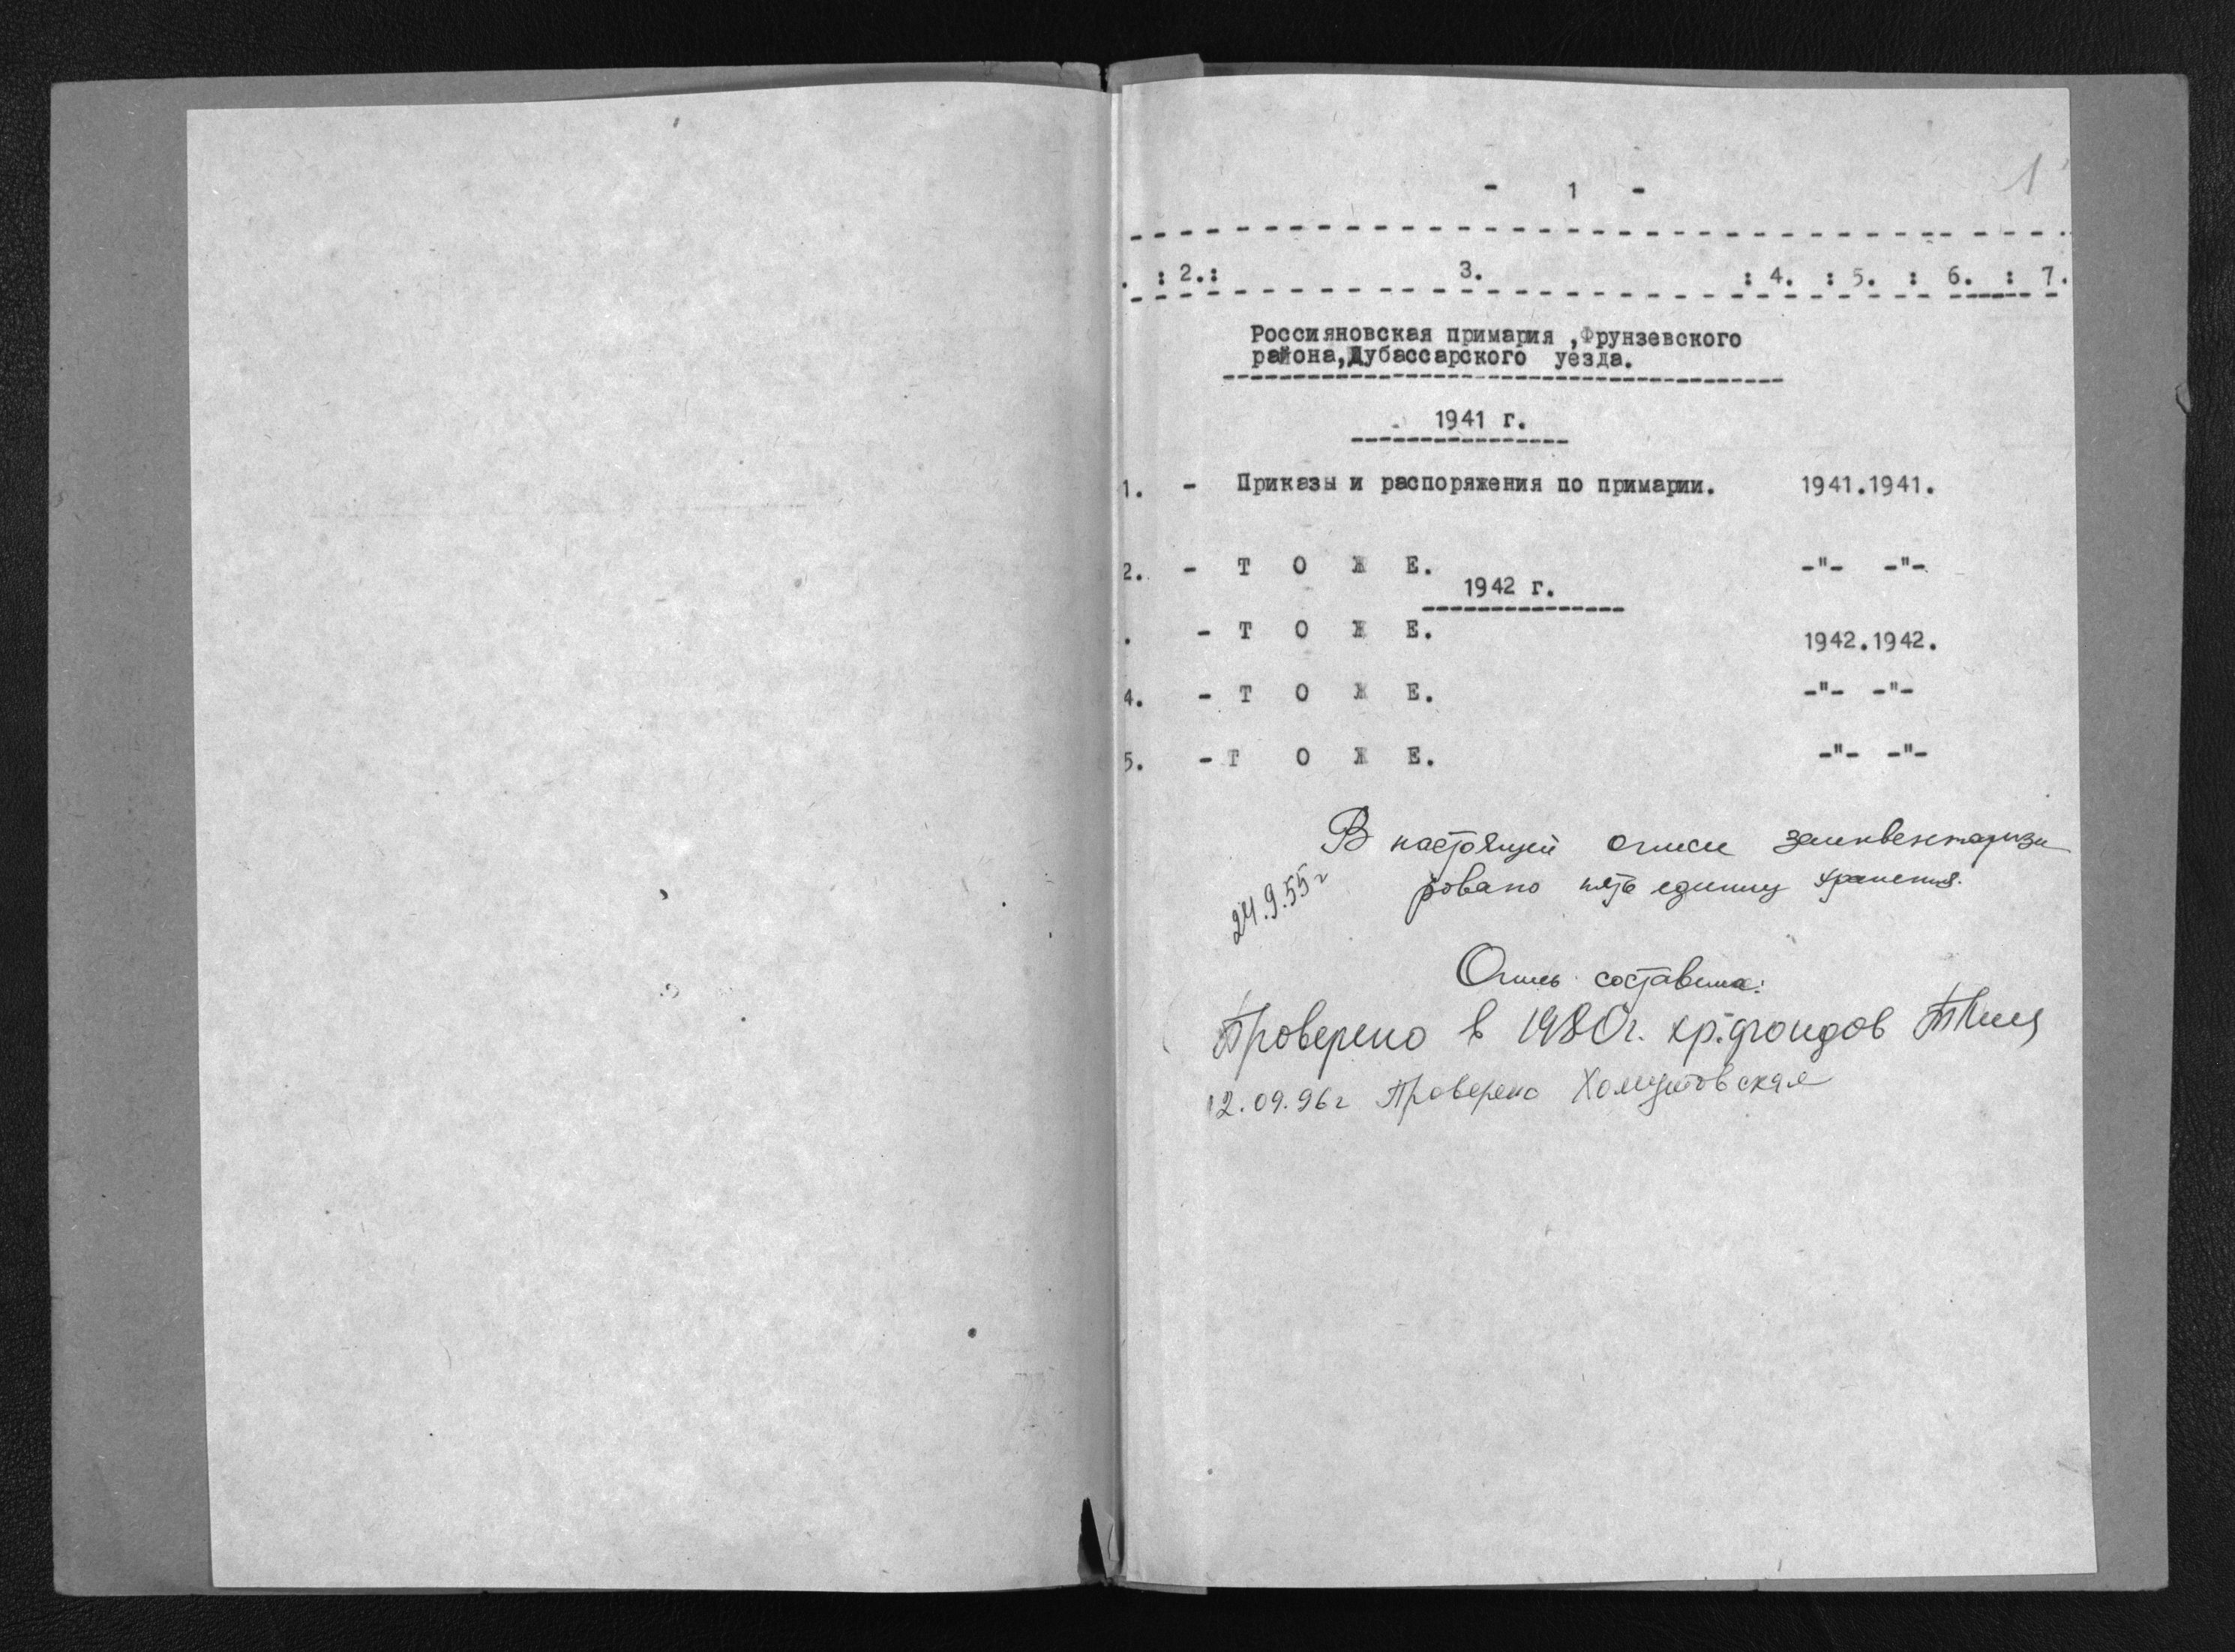 - 1 -
1
. : 2. : 3. : 4. : 5. : 6. : 7.
Россияновская примария ,Фрунзевского
района,Дубассарского уезда.
1941 г.
1. - Приказы и распоряжения по примарии. 1941.1941.
2. - Т О Ж Е. -"- -"-
1942 г.
. - Т О Ж Е. 1942.1942.
4. - Т О Ж Е. -"- -"-
5. - Т О Ж Е. -"- -"-
В настоящей описи заинвентаризи
ровано пять единиц хранения.
24.9.55 г
Опись составила:
Проверено в 1980г. хр. фондов
12.09.96г Проверено Хомутовская